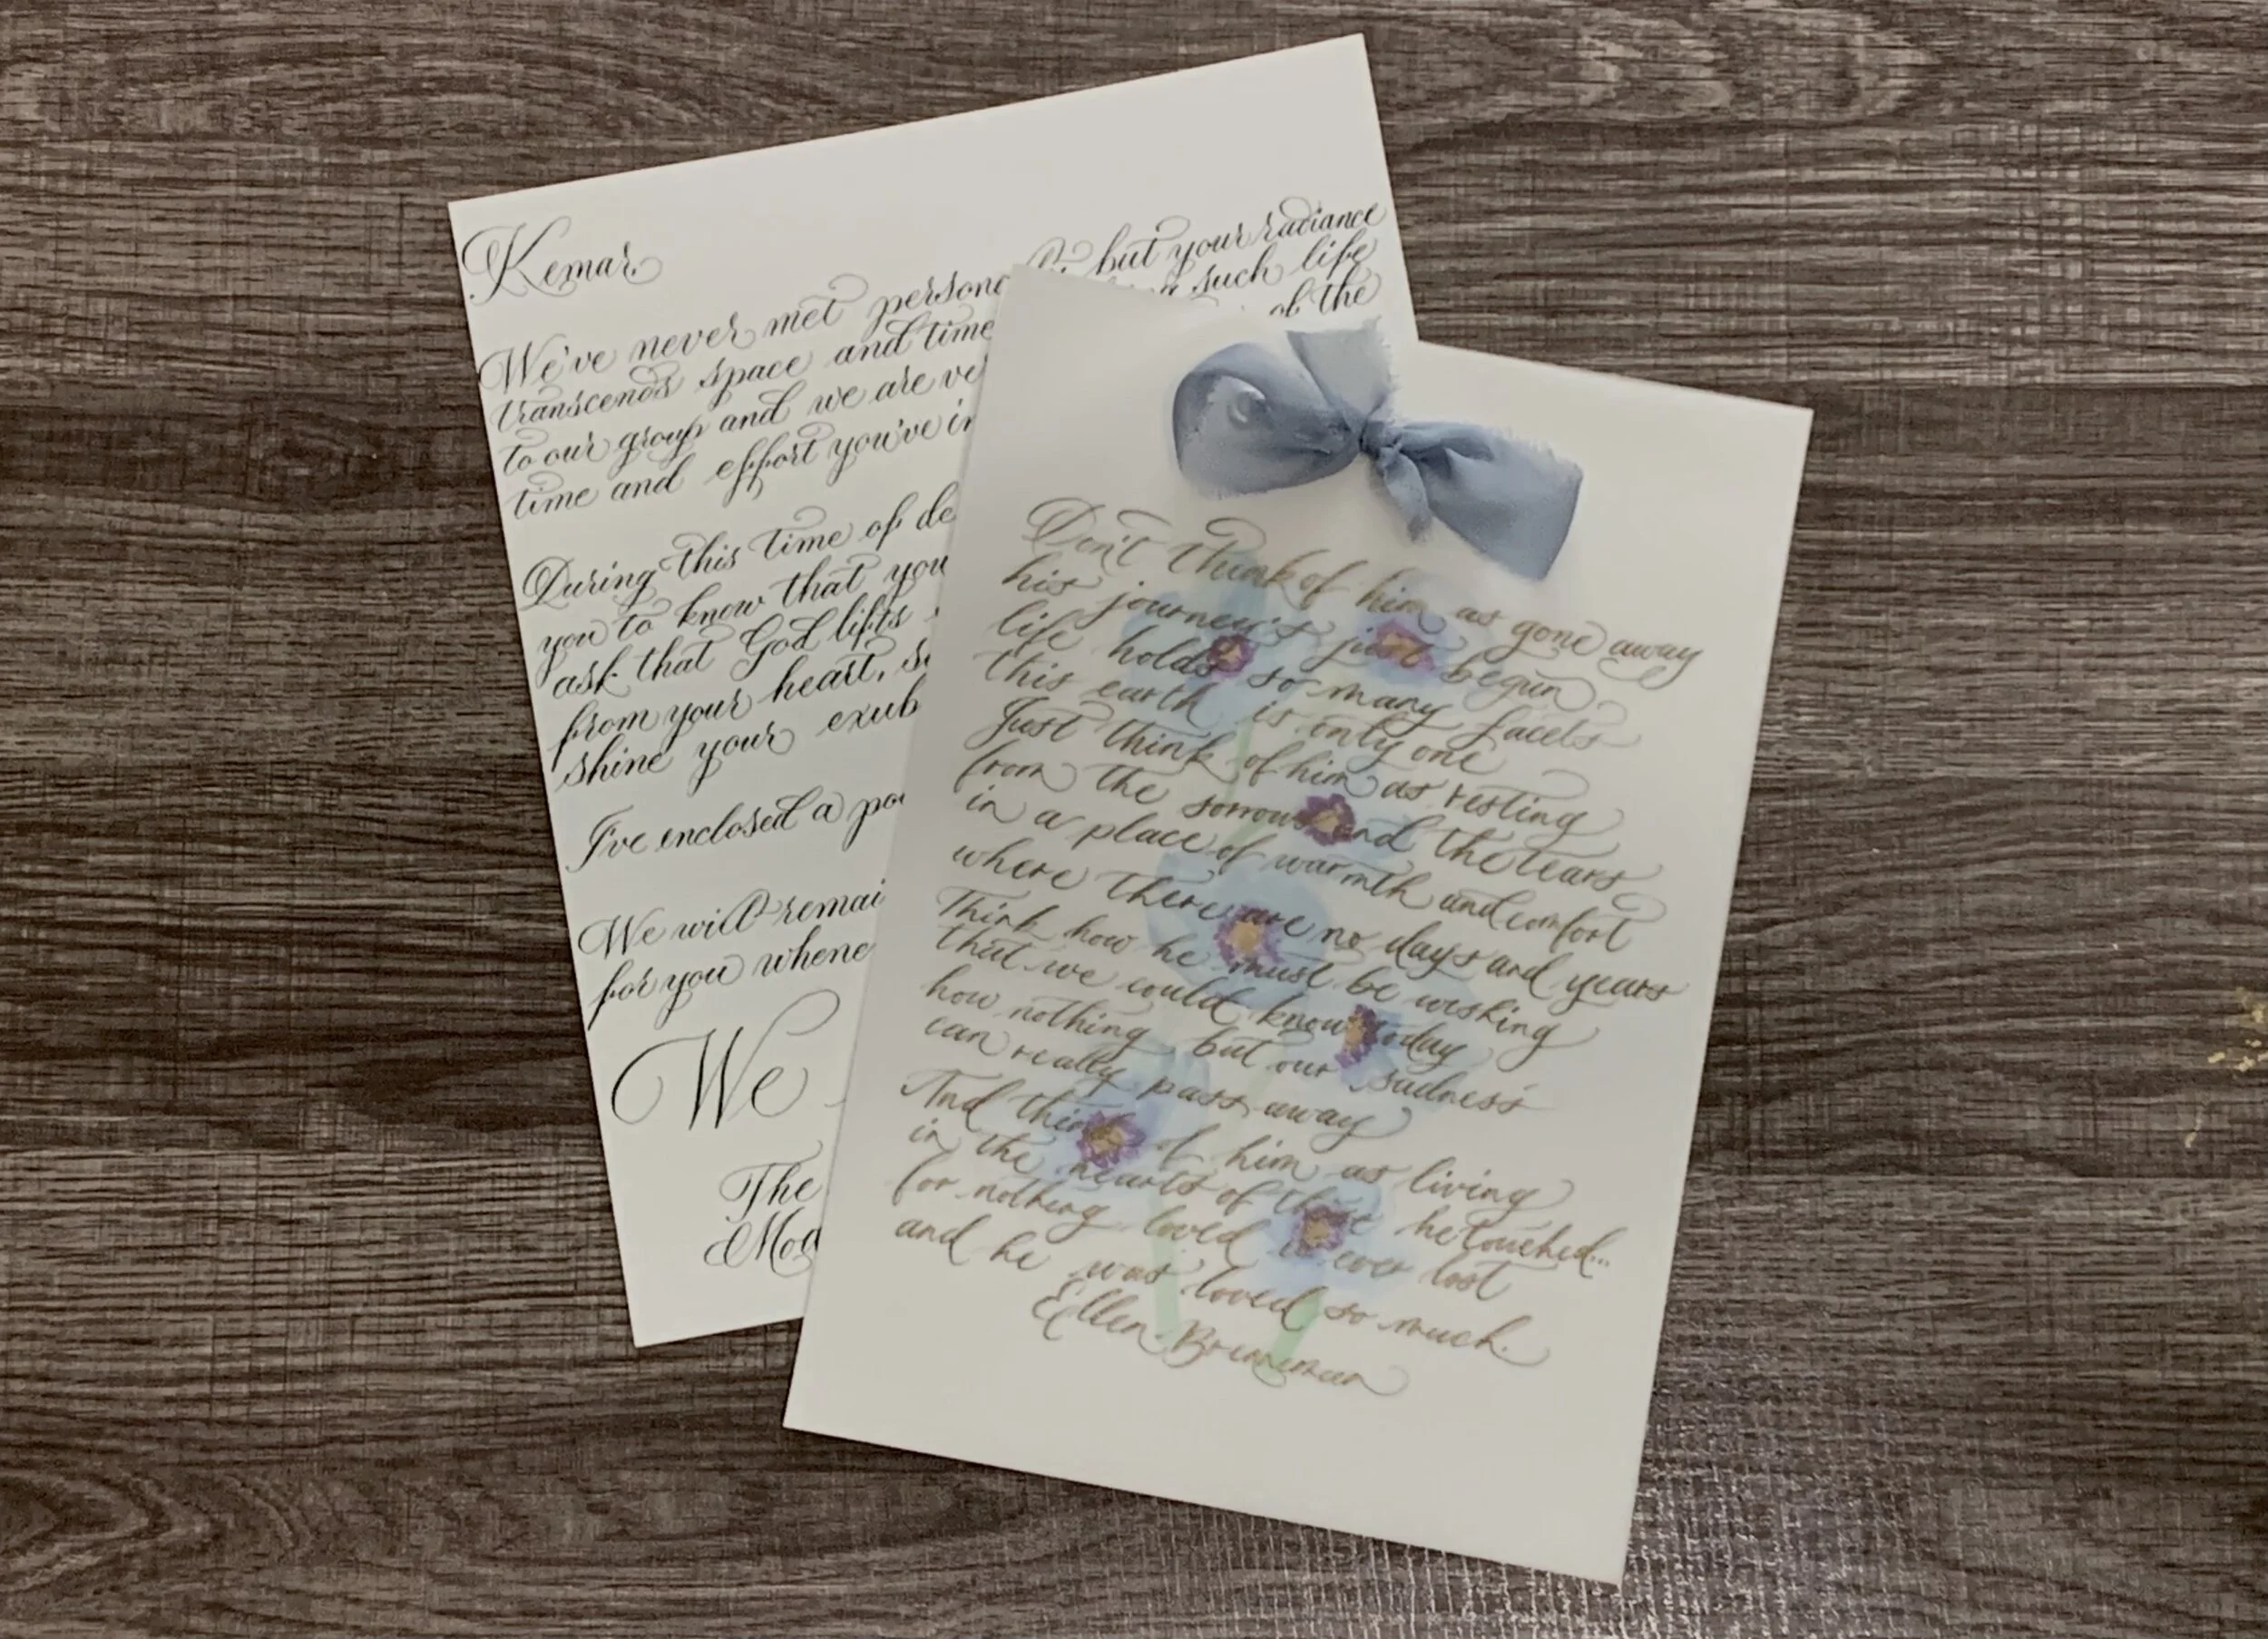 Kemar,
We've never met personally, but your radiance
transcends space and time such life
to our group and we are of the
time and effort you've
During this time of
you to know that
ask that God lifts
from your heart,
shine your
I've enclosed a
We will
for you
We
The
Don't think of him as gone away
his journey's just begun,
life holds so many facets
this earth is only one
Just think of him as resting
from the sorrows and the tears
in a place of warmth and comfort
where there are no days and years
Think how he must be wishing
that we could know today
how nothing but our sadness
can really pass away
And think of him as living
in the hearts of those he touched...
for nothing loved is ever lost
and he was loved so much.
Ellen Brenneman